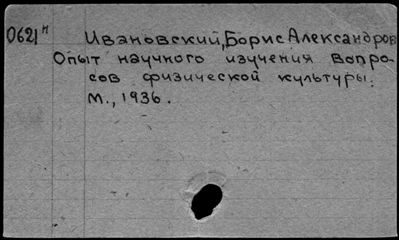 0621н
Ивановский, Борис Александров
Опыт научного изучения вопро-
сов физической культуры.
М., 1936.